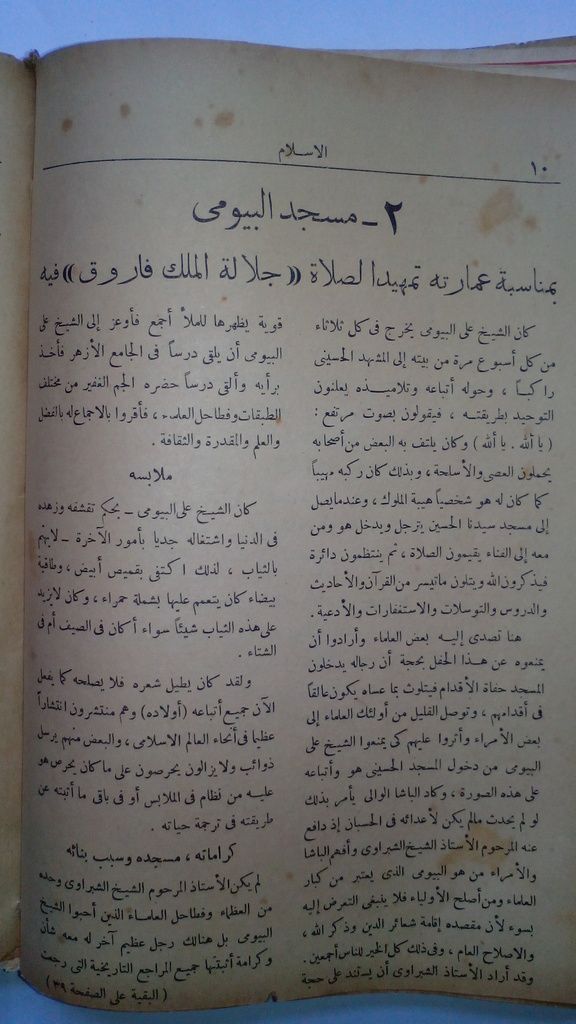 ١٠
الاسلام
٢ - مسجد البيومى
بمناسبة عمارته تمهيدا لصلاة «جلالة الملك فاروق» فيه
كان الشيخ على البيومى يخرج فى كل ثلاثاء
من كل أسبوع مرة من بيته إلى المشهد الحسينى
راكباً ، وحوله أتباعه وتلاميذه يعلنون
التوحيد بطريقته ، فيقولون بصوت مرتفع :
( يا ألله . يا ألله ) وكان يلتف به البعض من أصحابه
يحملون العصى والأسلحة ، وبذلك كان ركبه مهيباً
كما كان له هو شخصياً هيبة الملوك ، وعندما يصل
إلى مسجد سيدنا الحسين يترجل ويدخل هو ومن
معه إلى الفناء يقيمون الصلاة ، ثم ينتظمون دائرة
فيذكرون الله ويتلون ما تيسر من القرآن والأحاديث
والدروس والتوسلات والاستغفارات والأدعية .
هنا تصدى إليه بعض العلماء وأرادوا أن
يمنعوه عن هذا الحفل بحجة أن رجاله يدخلون
المسجد حفاة الأقدام فيتلوث بما عساه يكون عالقاً
فى أقدامهم ، وتوصل القليل من أولئك العلماء إلى
بعض الأمراء وأثروا عليهم كى يمنعوا الشيخ على
البيومى من دخول المسجد الحسينى هو وأتباعه
على هذه الصورة ، وكاد الباشا الوالى يأمر بذلك
لو لم يحدث مالم يكن لأعدائه فى الحسبان إذ دافع
عنه المرحوم الأستاذ الشيخ الشبراوى وأفهم الباشا
والأمراء من هو البيومى الذى يعتبر من كبار
العلماء ومن أصلح الأولياء فلا ينبغى التعرض إليه
بسوء لأن مقصده إقامة شعائر الدين وذكر الله ،
والاصلاح العام ، وفى ذلك كل الخير للناس أجمعين .
وقد أراد الأستاذ الشبراوى أن يستند على حجة
قوية يظهرها للملأ أجمع فأوعز إلى الشيخ على
البيومى أن يلقى درساً فى الجامع الأزهر فأخذ
برأيه وألقى درساً حضره الجم الغفير من مختلف
الطبقات وفطاحل العلماء ، فأقروا بالاجماع له بالفضل
والعلم والمقدرة والثقافة .
ملابسه
كان الشيخ على البيومى - بحكم تقشفه وزهده
فى الدنيا واشتغاله جديا بأمور الآخرة - لايهتم
بالثياب ، لذلك اكتفى بقميص أبيض ، وطاقية
بيضاء كان يتعمم عليها بشملة حمراء ، وكان لا يزيد
على هذه الثياب شيئاً سواء أكان فى الصيف أم فى
الشتاء .
ولقد كان يطيل شعره فلا يصلحه كما يفعل
الآن جميع أتباعه (أولاده) وهم منتشرون انتشاراً
عظيما فى أنحاء العالم الاسلامى ، والبعض منهم يرسل
ذوائب ولا يزالون يحرصون على ما كان يحرص هو
عليه من نظام فى الملابس أو فى باقى ما أتبته عن
طريقته فى ترجمة حياته .
كراماته ، مسجده وسبب بنائه
لم يكن الأستاذ المرحوم الشيخ الشبراوى وحده
من العظماء وفطاحل العلماء الذين أحبوا الشيخ
البيومى بل هنالك رجل عظيم آخر له معه شأن
وكرامة أثبتتها جميع المراجع التاريخية التى رجعت
( البقية على الصفحة ٣٩ )